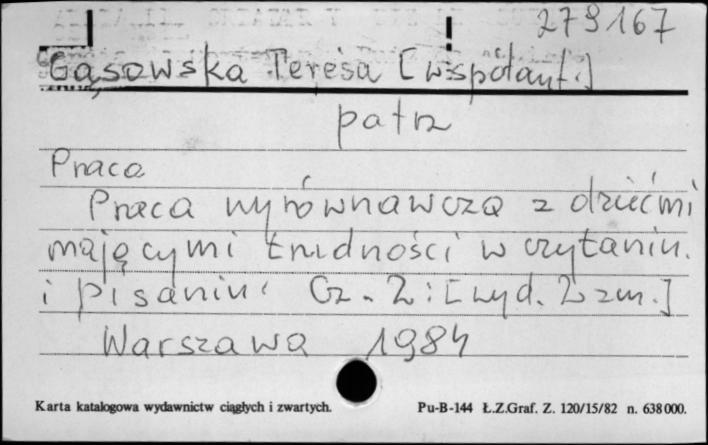 279167
Gąsowska Teresa [współaut.]
patrz
Praca
Praca wyrównawcza z dziećmi
mającymi trudności w czytaniu.
i pisaniu. Cz. 2: [wyd. 2 zm.]
Warszawa 1984
Karta katalogowa wydawnictw ciągłych i zwartych. Pu-B-144 Ł.Z.Graf. Z. 120/15/82 n. 638000.